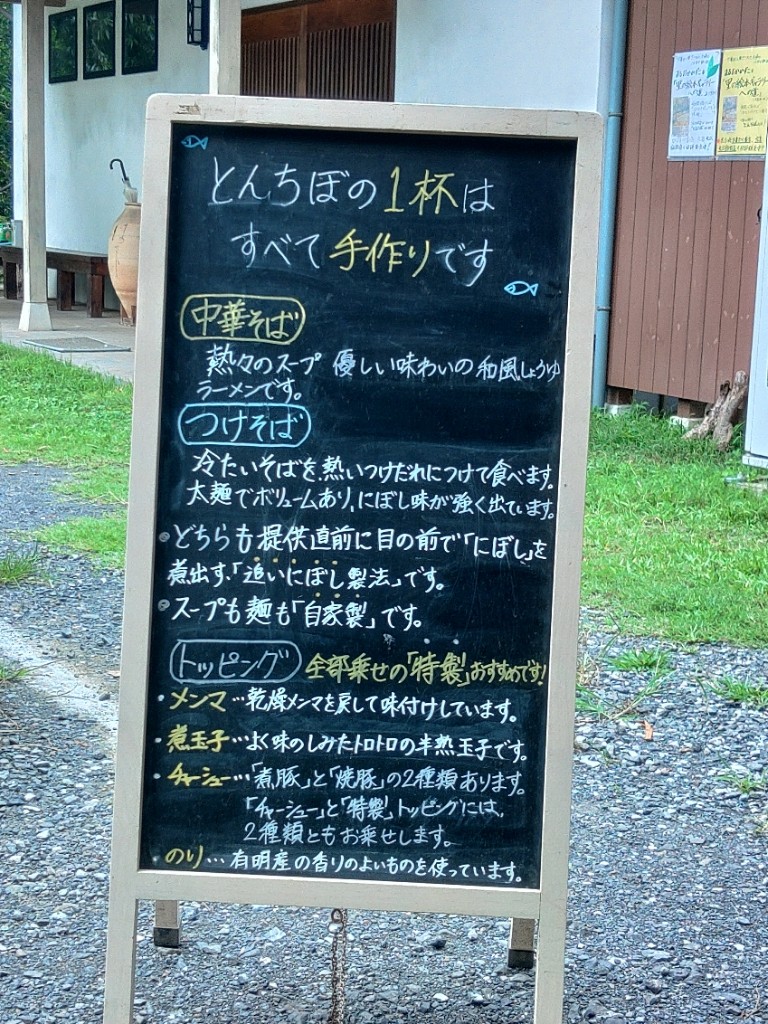 とんちぼの1杯は
すべて手作りです
中華そば
熱々のスープ 優しい味わいの和風しょうゆ
ラーメンです。
つけそば
冷たいそばを、熱いつけだれにつけて食べます。
太麺でボリュームあり、にぼし味が強く出ています。
・どちらも提供直前に目の前で「にぼし」を
煮出す、「追いにぼし製法」です。
・スープも麺も「自家製」です。
トッピング 全部乗せの「特製」おすすめです!
・メンマ…乾燥メンマを戻して味付けしています。
・煮玉子…よく味のしみたトロトロの半熟玉子です。
・チャーシュー…「煮豚」と「焼豚」の2種類あります。
「チャーシュー」と「特製」トッピングには、
2種類ともお乗せします。
・のり…有明産の香りのよいものを使っています。